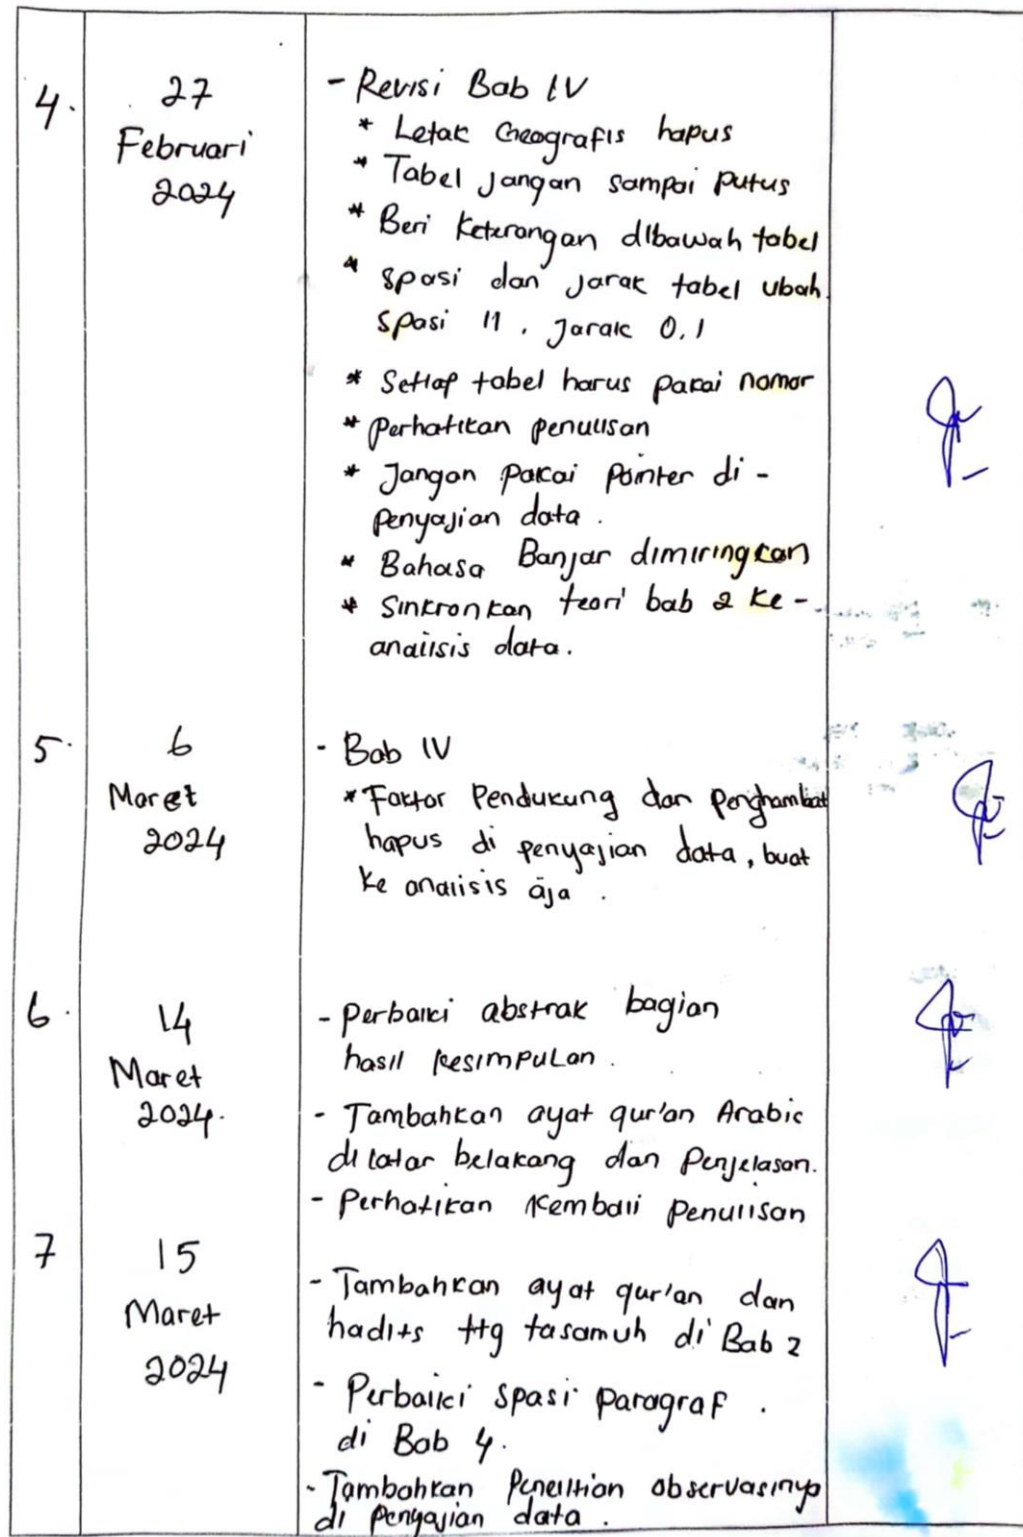 4.
27
Februari
2024
- Revisi Bab IV
* Letak Geografis hapus
* Tabel jangan sampai putus
* Beri keterangan dibawah tabel
* spasi dan jarak tabel ubah
spasi 11, jarak 0,1
* Setiap tabel harus pakai nomor
* Perhatikan penulisan
* Jangan pakai pointer di -
penyajian data.
* Bahasa Banjar dimiringkan
* Sinkronkan teori bab 2 ke -
analisis data.
5.
6
Maret
2024
- Bab IV
* Faktor Pendukung dan Penghambat
hapus di penyajian data, buat
ke analisis aja.
6.
14
Maret
2024.
- Perbaiki abstrak bagian
hasil kesimpulan.
- Tambahkan ayat qur'an Arabic
di latar belakang dan Penjelasan.
- Perhatikan kembali penulisan
7
15
Maret
2024
- Tambahkan ayat qur'an dan
hadits ttg tasamuh di Bab 2
- Perbaiki spasi paragraf.
di Bab 4.
- Tambahkan Penelitian observasinya
di penyajian data.